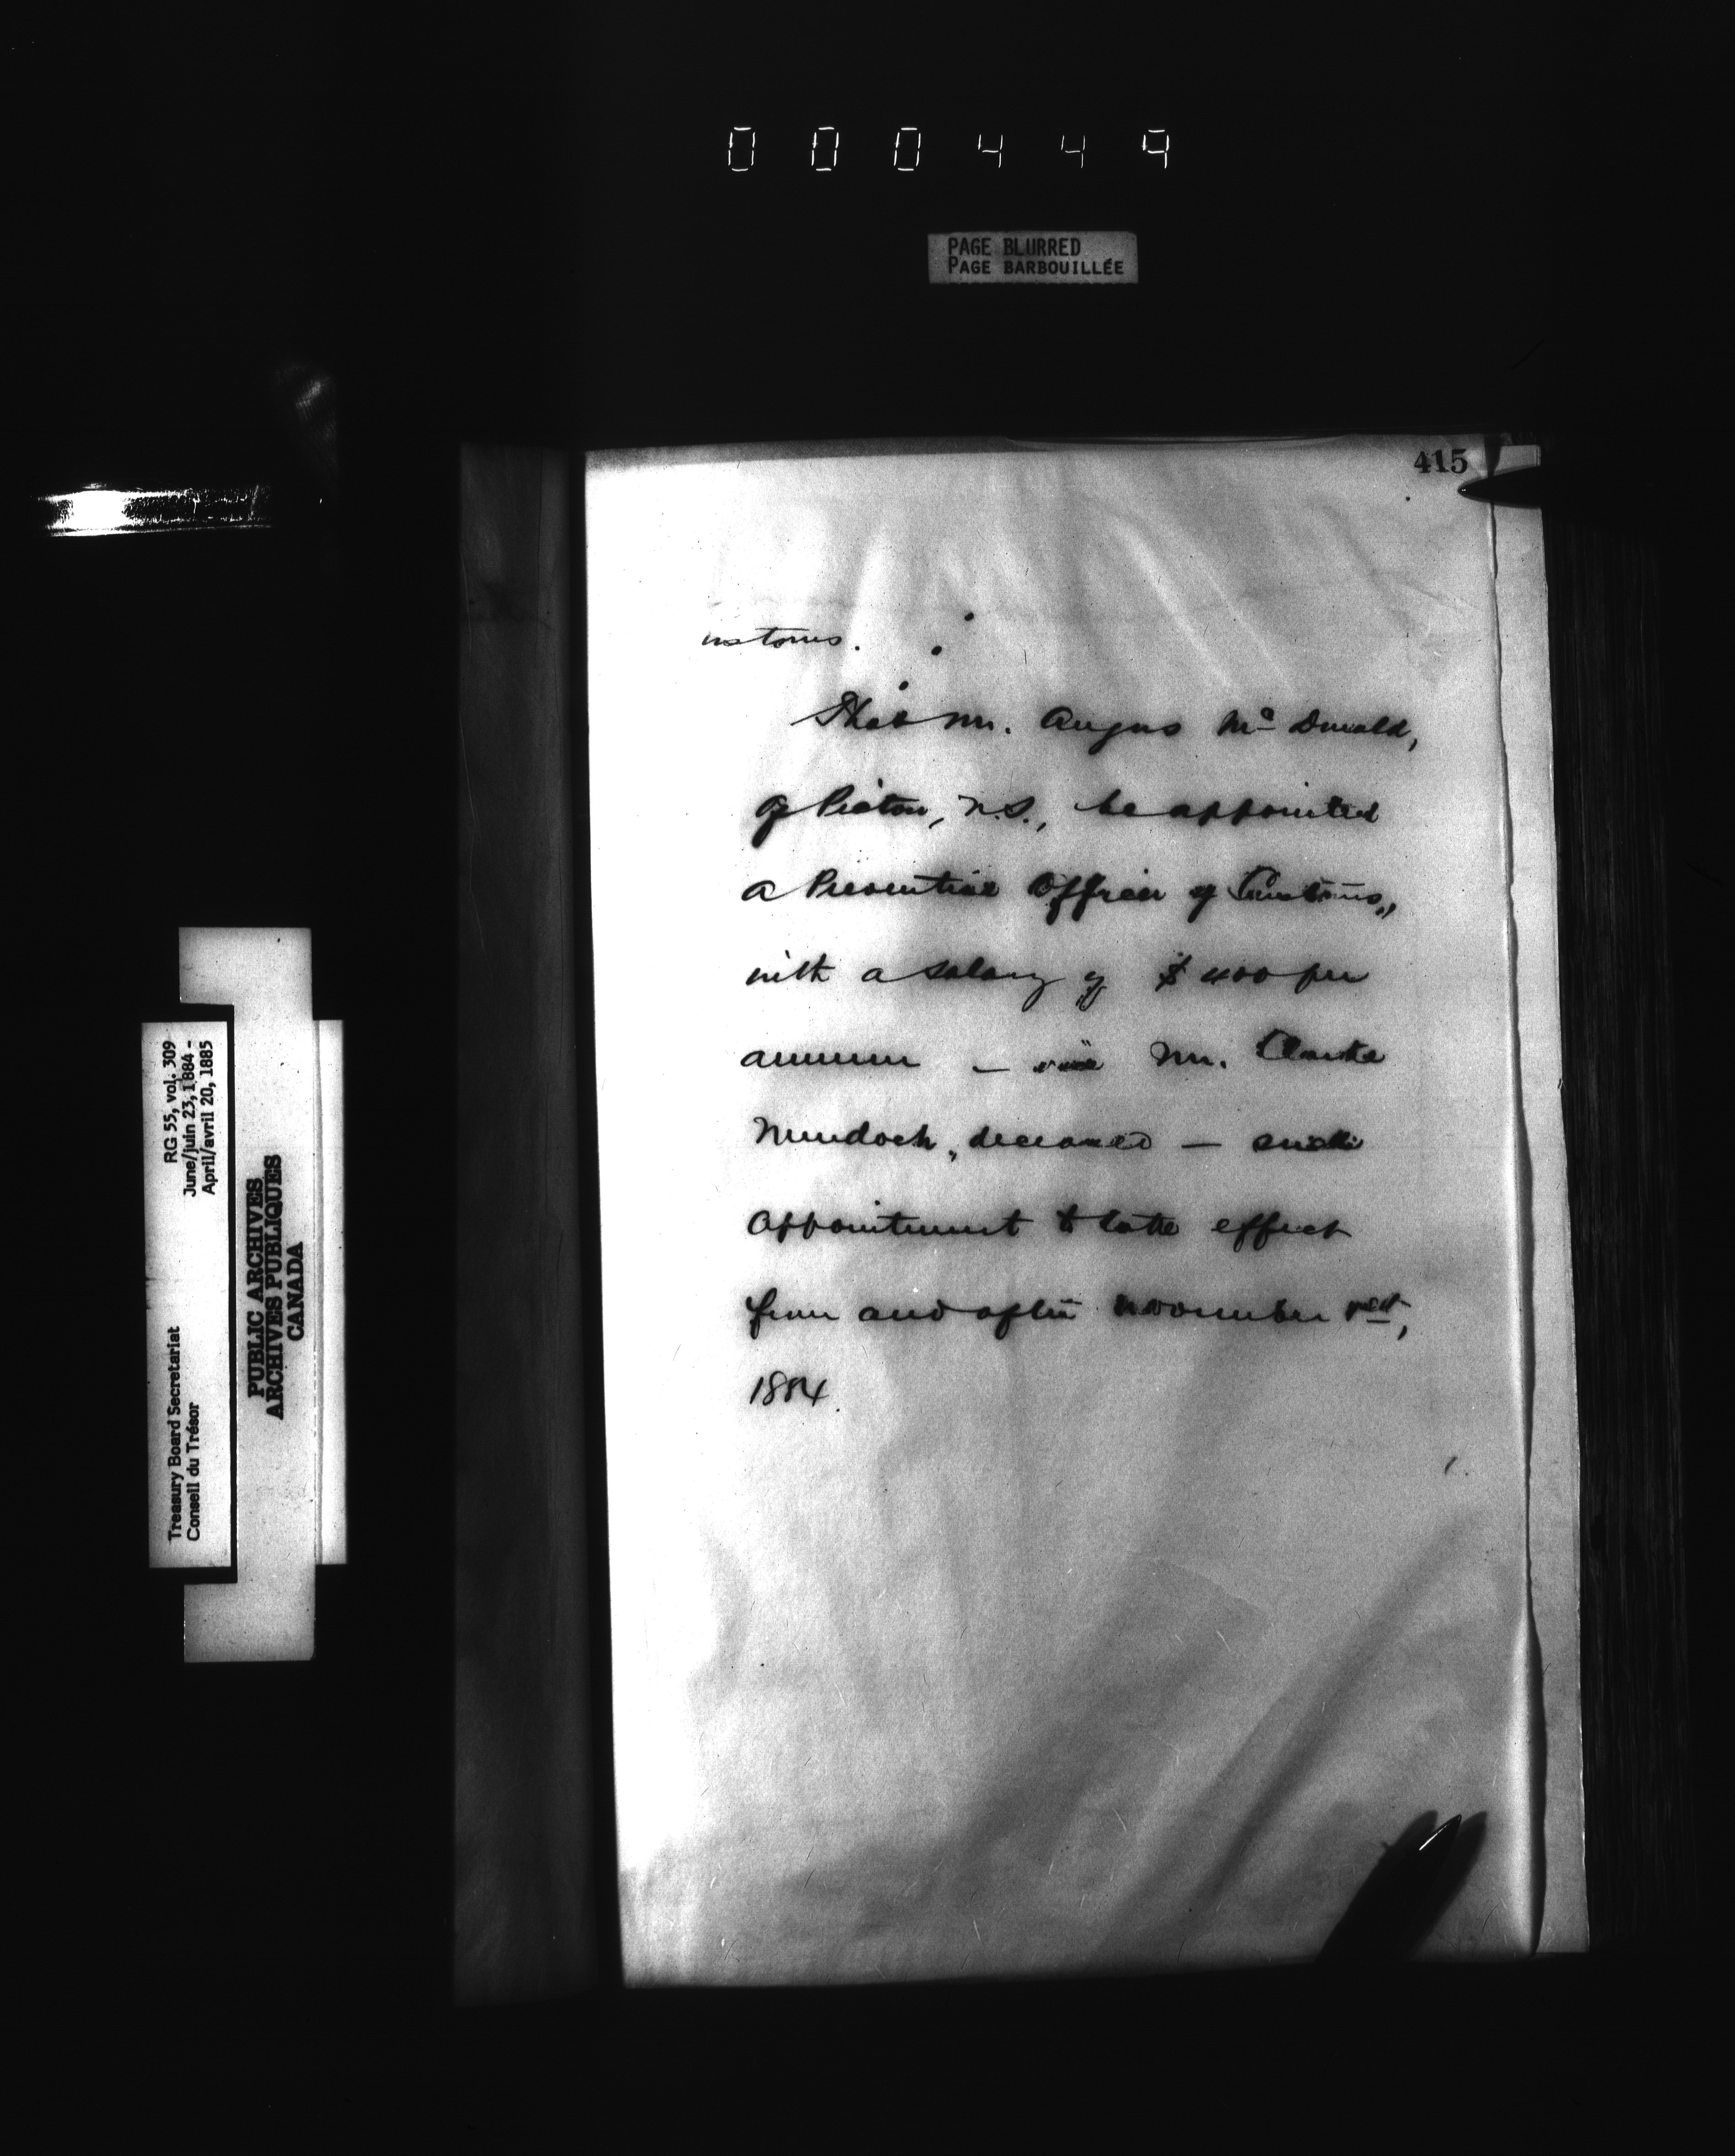 000449
PAGE BLURRED
PAGE BARBOUILLÉE
415
ustoms.
That Mr. Angus Mc Donald,
of Pictou, N.S., be appointed
a Preventive Officer of Customs,
with a salary of $400 per
annum — vice Mr.
Murdoch, deceased — such
appointment to take effect
from and after November 1st,
1884.
RG 55, vol. 309
June/juin 23, 1884 -
April/avril 20, 1885
Treasury Board Secretariat
Conseil du Trésor
PUBLIC ARCHIVES
ARCHIVES PUBLIQUES
CANADA